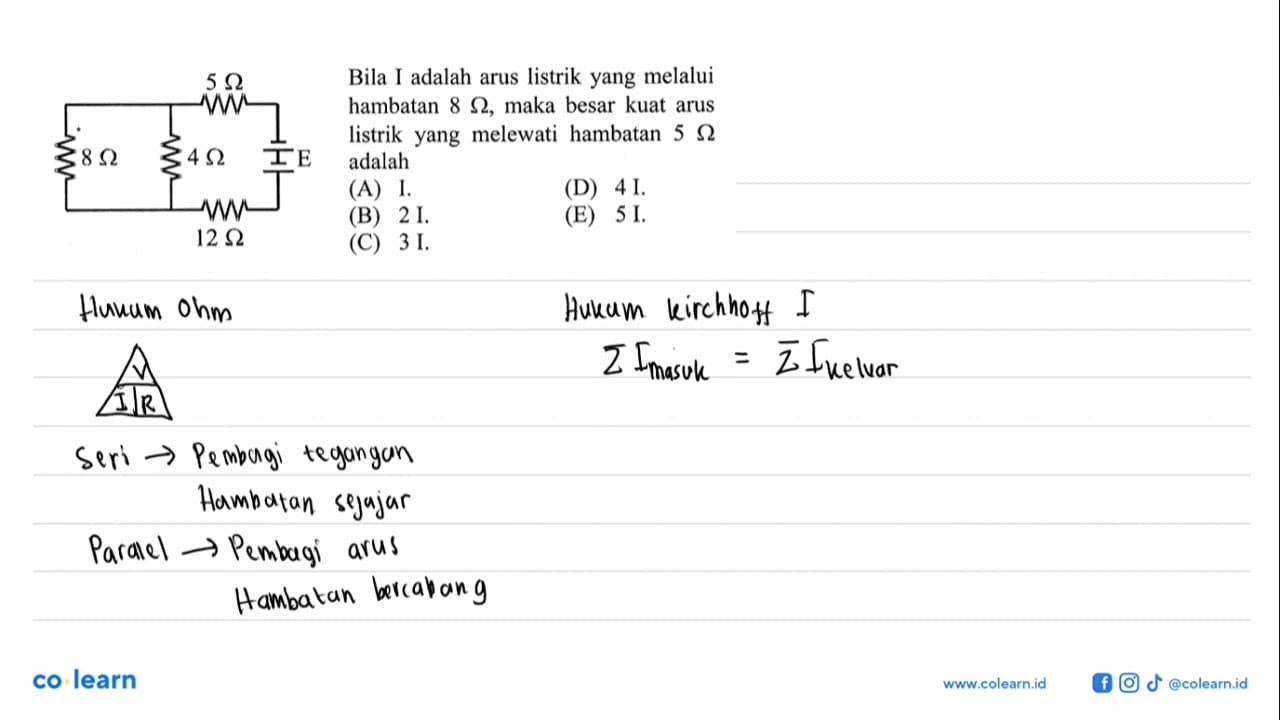 5 Ω
8 Ω
4 Ω
E
12 Ω
Bila I adalah arus listrik yang melalui
hambatan 8 Ω, maka besar kuat arus
listrik yang melewati hambatan 5 Ω
adalah
(A) I.
(B) 2 I.
(C) 3 I.
(D) 4 I.
(E) 5 I.
Hukum Ohm
V
I R
Seri → Pembagi tegangan
Hambatan sejajar
Paralel → Pembagi arus
Hambatan bercabang
Hukum Kirchhoff I
Σ I masuk = Σ I keluar
co learn
www.colearn.id
@colearn.id